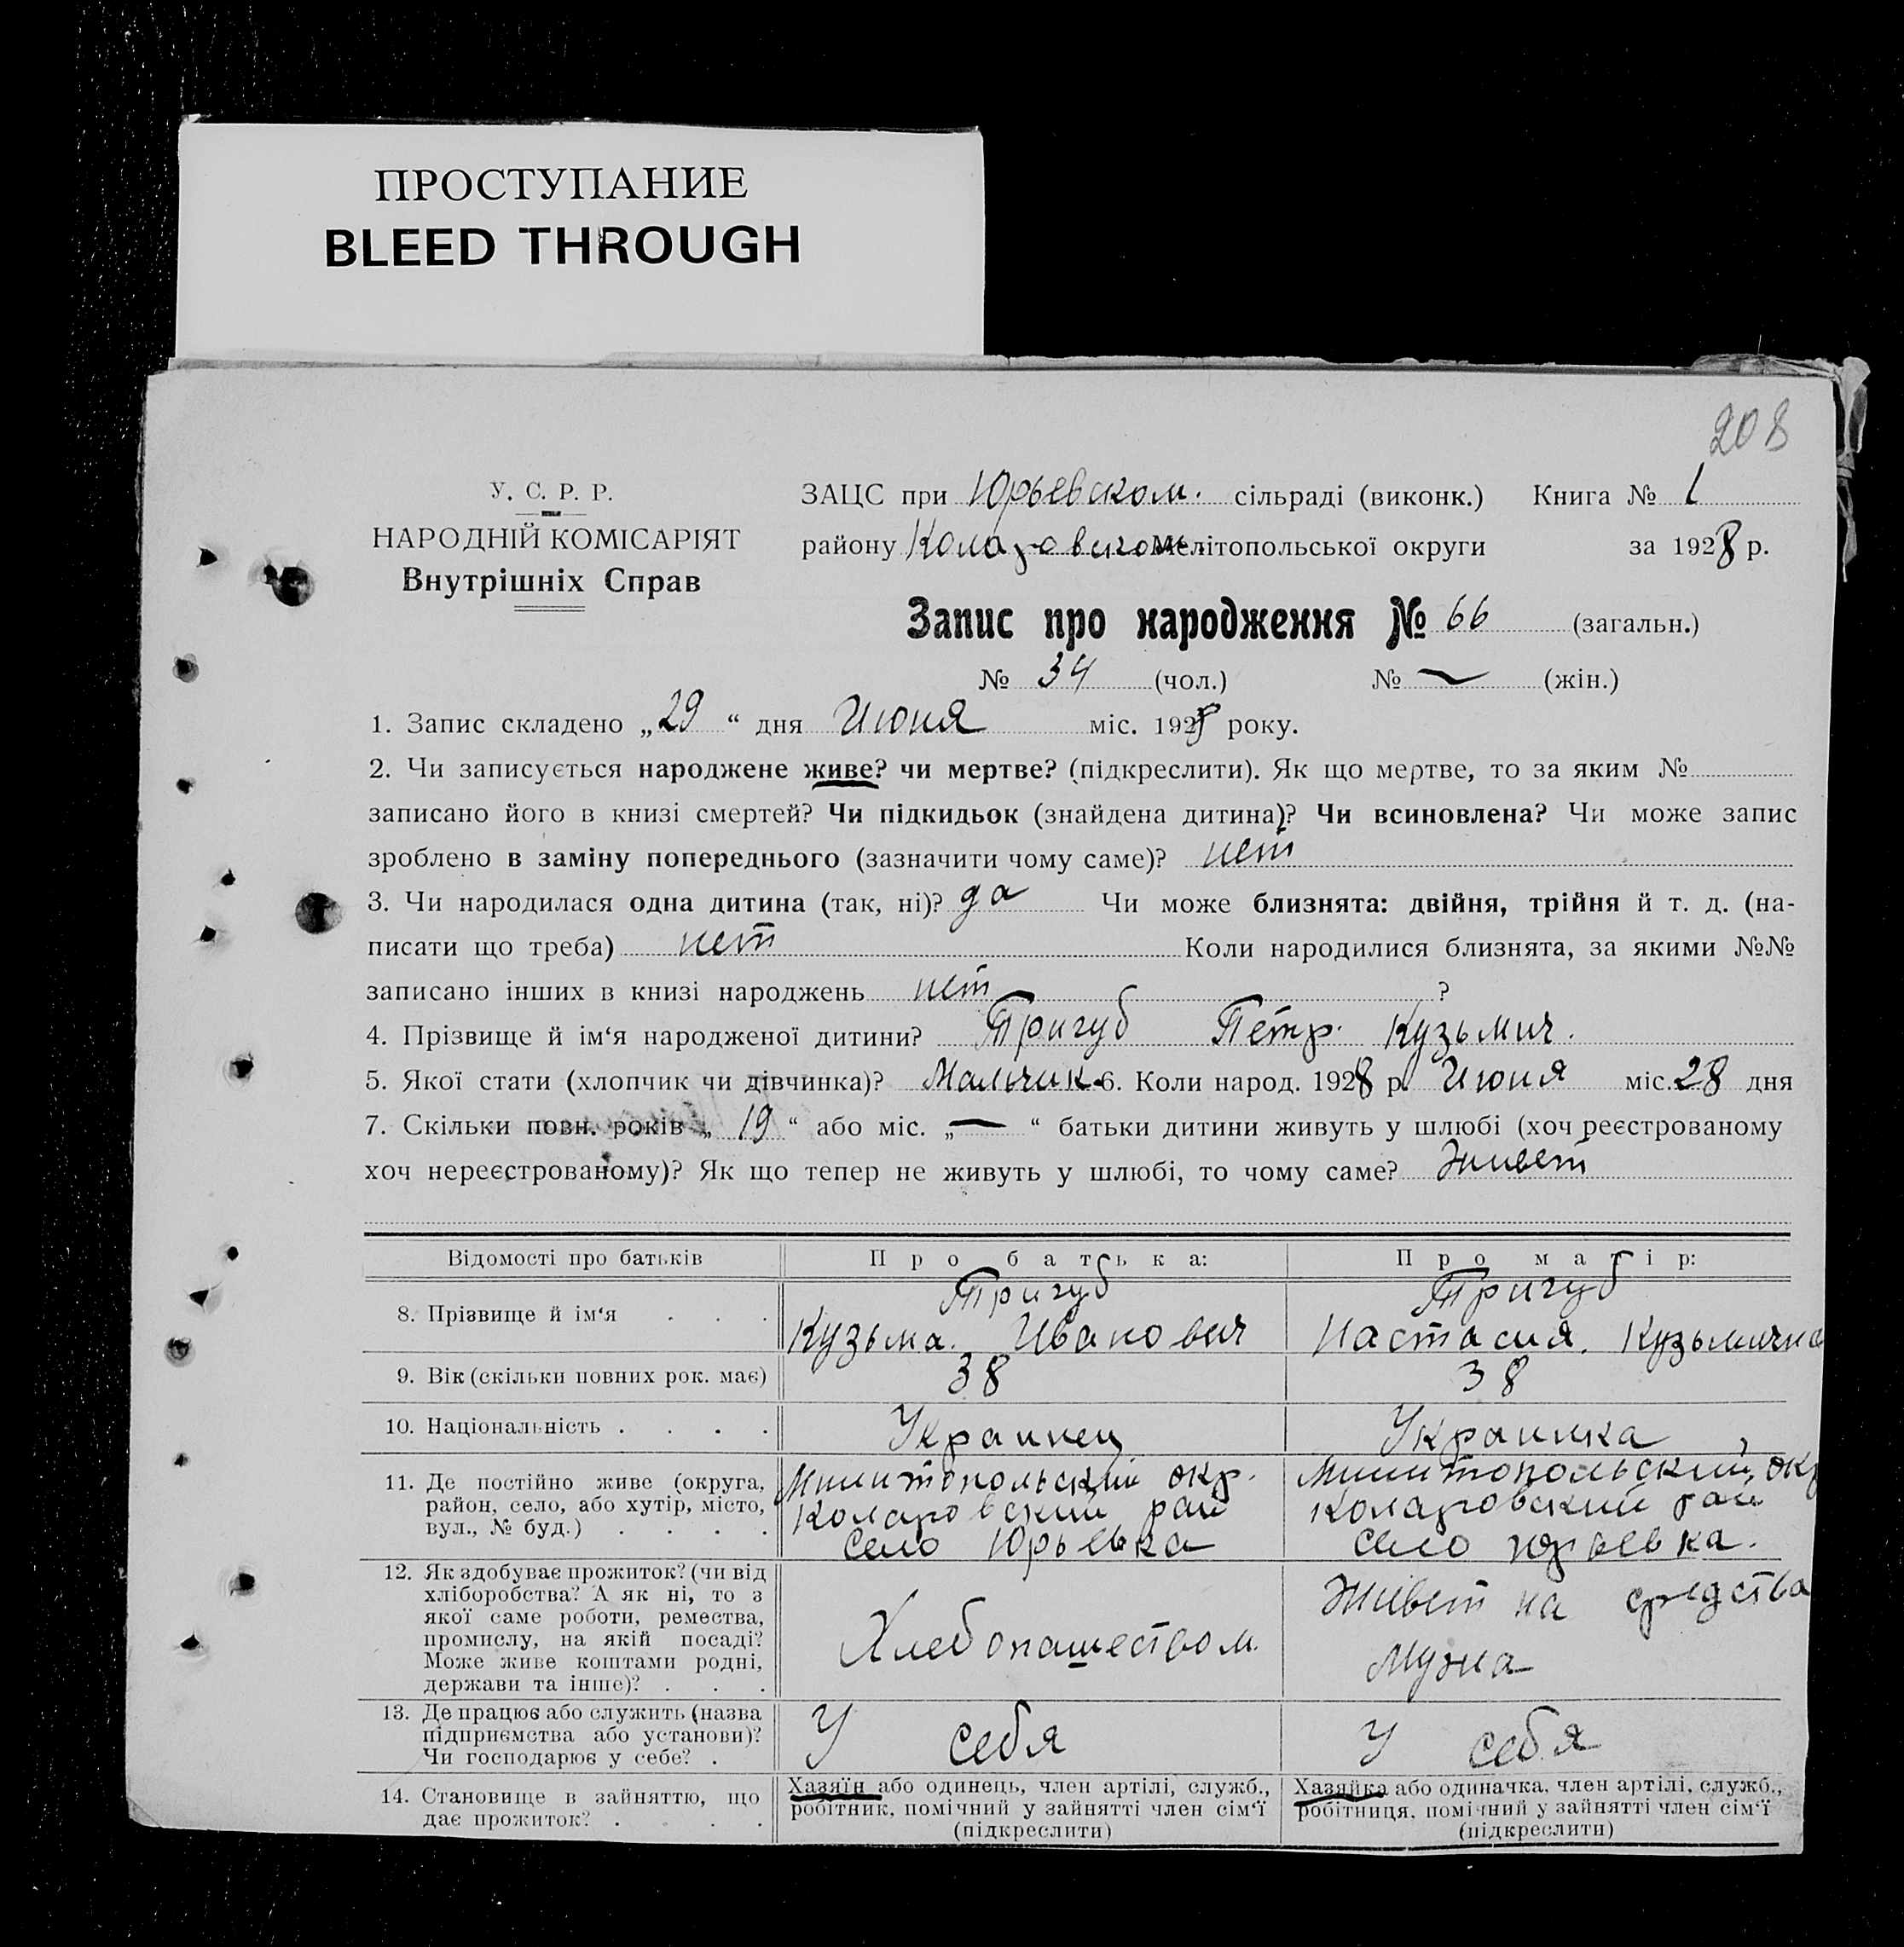 ПРОСТУПАНИЕ
BLEED THROUGH
208
У. С. Р. Р.
НАРОДНІЙ КОМІСАРІЯТ
Внутрішніх Справ
ЗАЦС при Юрьевском. сільраді (виконк.) Книга № 1
району Коларовском Мелітопольської округи за 1928 р.
Запис про народження № 66 (загальн.)
№ 34 (чол.) № — (жін.)
1. Запис складено „29“ дня Июня міс. 1928 року.
2. Чи записується народжене живе? чи мертве? (підкреслити). Як що мертве, то за яким №
записано його в книзі смертей? Чи підкидьок (знайдена дитина)? Чи всиновлена? Чи може запис
зроблено в заміну попереднього (зазначити чому саме)? нет
3. Чи народилася одна дитина (так, ні)? да Чи може близнята: двійня, трійня й т. д. (на-
писати що треба) нет Коли народилися близнята, за якими №№
записано інших в книзі народжень нет ?
4. Прізвище й ім‘я народженої дитини? Тригуб Петр. Кузьмич.
5. Якої стати (хлопчик чи дівчинка)? Мальчик 6. Коли народ. 1928 р. Июня міс. 28 дня
7. Скільки повн. років „ 19 “ або міс. „ — “ батьки дитини живуть у шлюбі (хоч реєстрованому
хоч нереєстрованому)? Як що тепер не живуть у шлюбі, то чому саме? Живет
Відомості про батьків Про батька: Про матір:
8. Прізвище й ім‘я . . . Тригуб Кузьма. Иванович Тригуб Настасия. Кузьмична
9. Вік (скільки повних рок. має) 38 38
10. Національність . . . . Украинец Украинка
11. Де постійно живе (округа,
район, село, або хутір, місто,
вул., № буд.) . . . .
Милитопольский окр.
Коларовский рай
село Юрьевка
Милитопольский, окр
Коларовский рай
село Юрьевка.
12. Як здобуває прожиток? (чи від
хліборобства? А як ні, то з
якої саме роботи, ремества,
промислу, на якій посаді?
Може живе коштами родні,
держави та інше)? . . .
Хлебопашеством.
Живет на средства
мужа
13. Де працює або служить (назва
підприємства або установи)?
Чи господарює у себе? .
У себя
У себя
14. Становище в зайняттю, що
дає прожиток? . . . .
Хазяїн або одинець, член артілі, служб.,
робітник, помічний у зайнятті член сім‘ї
(підкреслити)
Хазяйка або одиначка, член артілі, служб.,
робітниця, помічний у зайнятті член сім‘ї
(підкреслити)